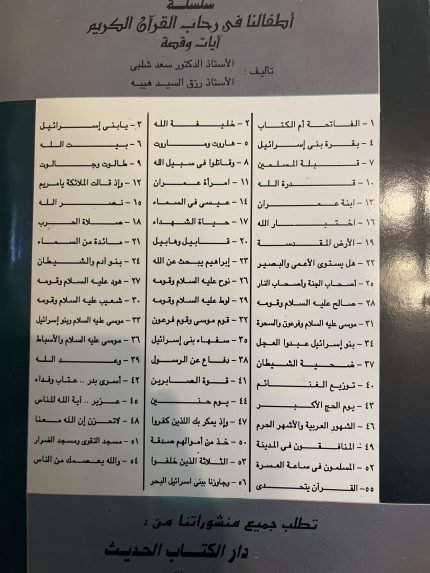 سلسلة
أطفالنا فى رحاب القرآن الكريم
آيات وقصة
تأليف: الأستاذ الدكتور سعد شلبى
الأستاذ رزق السيد هيبه
١ - الفاتحة أم الكتاب ٢ - خليفة الله ٣ - يابنى إسرائيل
٤ - بقرة بنى إسرائيل ٥ - هاروت وماروت ٦ - بيت الله
٧ - قبلة المسلمين ٨ - وقاتلوا فى سبيل الله ٩ - طالوت وجالوت
١٠ - قدرة الله ١١ - امرأة عمران ١٢ - وإذ قالت الملائكة يامريم
١٣ - ابنة عمران ١٤ - عيسى فى السماء ١٥ - نصر الله
١٦ - اختبار الله ١٧ - حياة الشهداء ١٨ - صلاة الحرب
١٩ - الأرض المقدسة ٢٠ - قابيل وهابيل ٢١ - مائدة من السماء
٢٢ - هل يستوى الأعمى والبصير ٢٣ - إبراهيم يبحث عن الله ٢٤ - بنو آدم والشيطان
٢٥ - أصحاب الجنة وأصحاب النار ٢٦ - نوح عليه السلام وقومه ٢٧ - هود عليه السلام وقومه
٢٨ - صالح عليه السلام وقومه ٢٩ - لوط عليه السلام وقومه ٣٠ - شعيب عليه السلام وقومه
٣١ - موسى عليه السلام وفرعون والسحرة ٣٢ - قوم موسى وقوم فرعون ٣٣ - موسى عليه السلام وبنو إسرائيل
٣٤ - بنو إسرائيل عبدوا العجل ٣٥ - سفهاء بنى إسرائيل ٣٦ - موسى عليه السلام والأسباط
٣٧ - ضحية الشيطان ٣٨ - دفاع عن الرسول ٣٩ - وعد الله
٤٠ - توزيع الغنائم ٤١ - قوة الصابرين ٤٢ - أسرى بدر .. عتاب وفداء
٤٣ - يوم الحج الأكبر ٤٤ - يوم حنين ٤٥ - عزير .. آية الله للناس
٤٦ - الشهور العربية والأشهر الحرم ٤٧ - وإذ يمكر بك اللذين كفروا ٤٨ - لاتحزن إن الله معنا
٤٩ - المنافقون فى المدينة ٥٠ - خذ من أموالهم صدقة ٥١ - مسجد التقوى ومسجد الضرار
٥٢ - المسلمون فى ساعة العسرة ٥٣ - الثلاثة الذين خلفوا ٥٤ - والله يعصمك من الناس
٥٥ - القرآن يتحدى ٥٦ - وجاوزنا ببنى اسرائيل البحر
تطلب جميع منشوراتنا من :
دار الكتاب الحديث